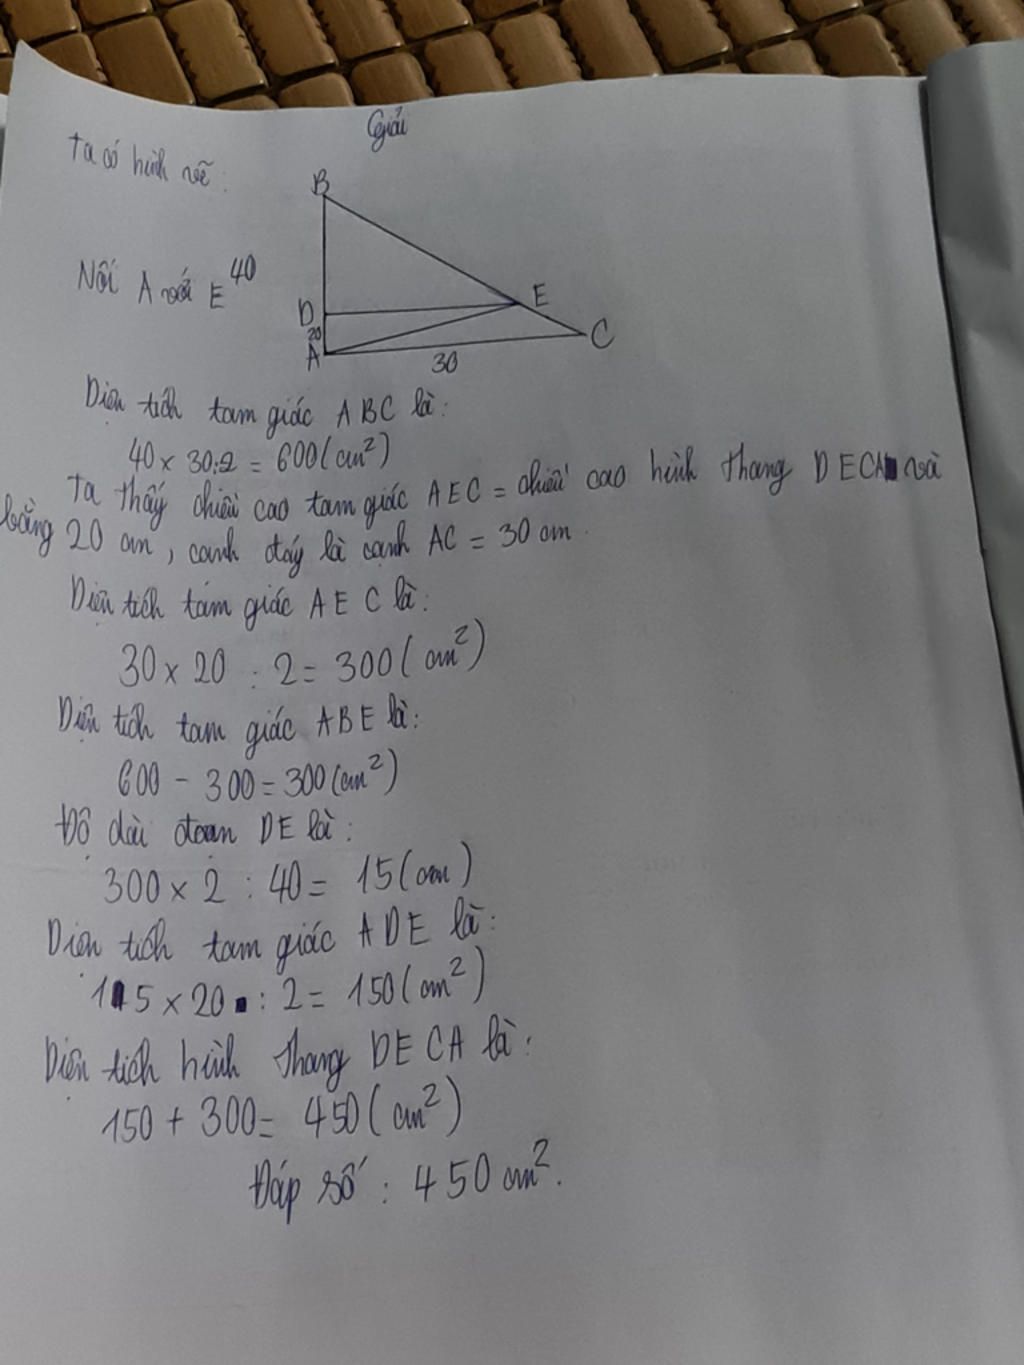 Giải
Ta có hình vẽ:
B
Nối A với E
40
D
E
20
A
C
30
Diện tích tam giác ABC là:
40 x 30:2 = 600 (cm²)
Ta thấy chiều cao tam giác AEC = chiều cao hình thang DECA và
bằng 20 cm, cạnh đáy là cạnh AC = 30 cm.
Diện tích tam giác AEC là:
30 x 20 : 2 = 300 (cm²)
Diện tích tam giác ABE là:
600 - 300 = 300 (cm²)
Độ dài đoạn DE là:
300 x 2 : 40 = 15 (cm)
Diện tích tam giác ADE là:
15 x 20 : 2 = 150 (cm²)
Diện tích hình thang DECA là:
150 + 300 = 450 (cm²)
Đáp số: 450 cm².